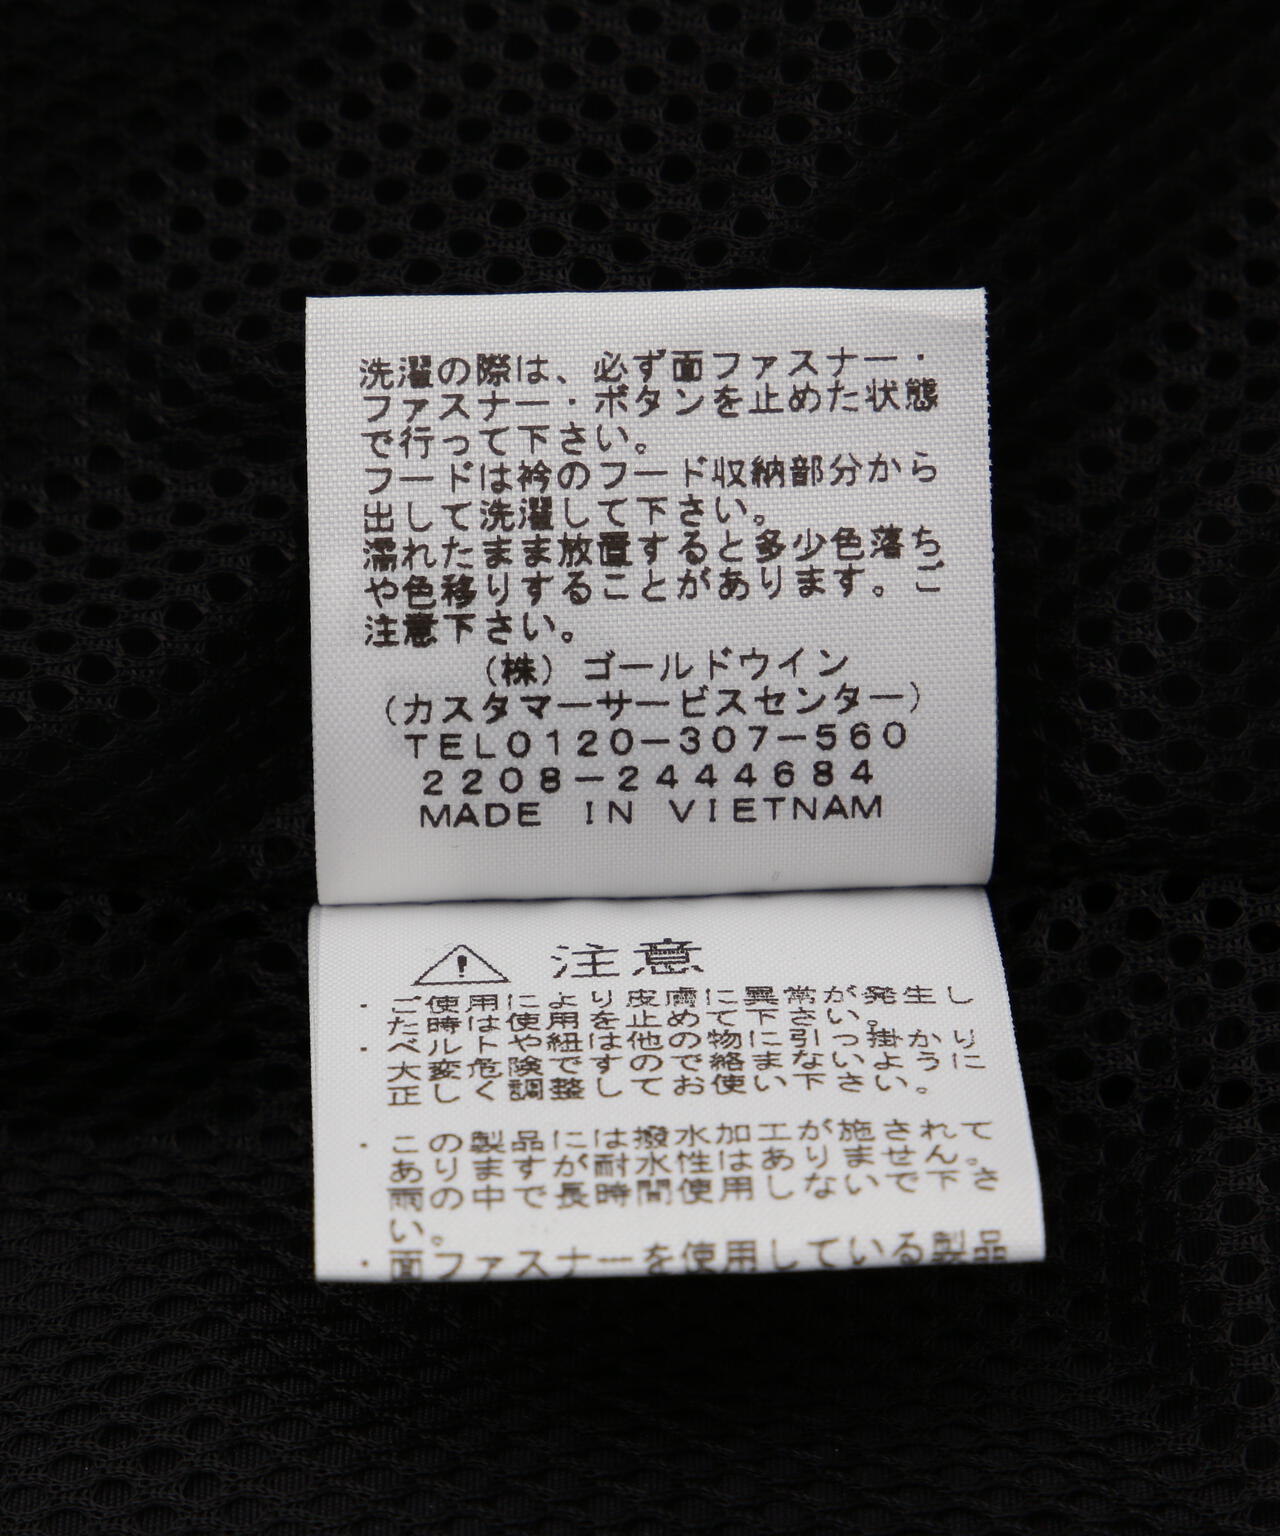 洗濯の際は、必ず面ファスナー・
ファスナー・ボタンを止めた状態
で行って下さい。
フードは衿のフード収納部分から
出して洗濯して下さい。
濡れたまま放置すると多少色落ち
や色移りすることがあります。ご
注意下さい。
(株)ゴールドウイン
(カスタマーサービスセンター)
TEL0120-307-560
2208-2444684
MADE IN VIETNAM
注意
・ご使用により皮膚に異常が発生し
た時は使用を止めて下さい。
・ベルトや紐は他の物に引っ掛かり
大変危険ですので絡まないように
正しく調整してお使い下さい。
・この製品には撥水加工が施されて
ありますが耐水性はありません。
雨の中で長時間使用しないで下さ
い。
・面ファスナーを使用している製品